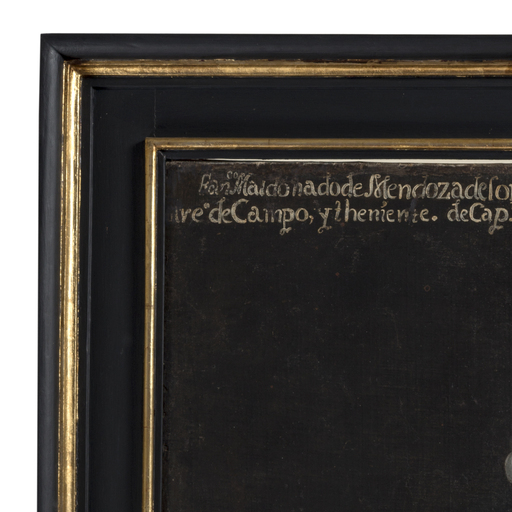 Fran.co Maldonado de Mendoza del or
re° de Campo, y theniente. de Cap.